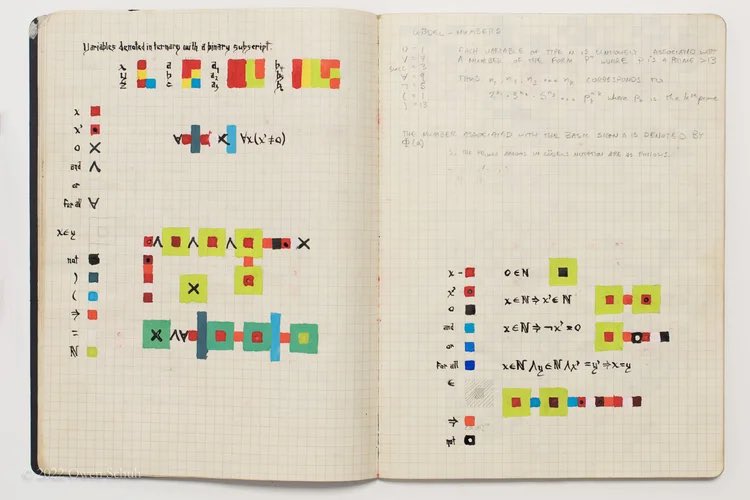 Variables denoted in ternary with a binary subscript.
x a a₁ b₁
y b a₂ b₂
z c a₃
x
x'
0
and
or
for all
∀x(x'≠0)
x∈y
not
)
(
⇒
=
ℕ
GÖDEL - NUMBERS
0 = 1 EACH VARIABLE OF TYPE N IS UNIQUELY ASSOCIATED WITH
A NUMBER OF THE FORM Pⁿ WHERE P IS A PRIME > 13
THUS n₁ n₂ n₃ ... nₖ CORRESPONDS TO
where Pₖ is the kth prime
( = 11
) = 13
THE NUMBER ASSOCIATED WITH THE BASIC SIGN a IS DENOTED BY
Φ(a)
x
x'
0
and
or
For all
∈
⇒
not
0∈ℕ
x∈ℕ⇒x'∈ℕ
x∈ℕ⇒¬x'=0
x∈ℕ∧y∈ℕ∧x'=y'⇒x=y
© 2022 Owen Schuh